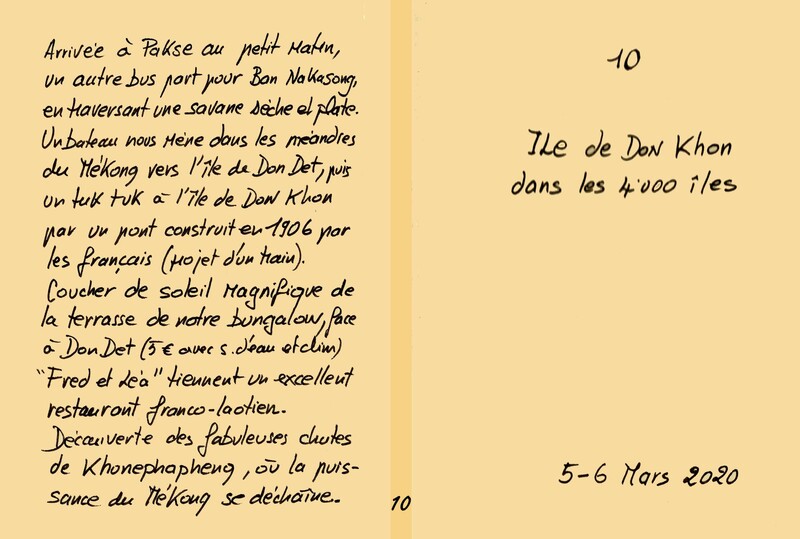 Arrivée à Pakse au petit matin,
un autre bus part pour Ban Nakasong,
en traversant une savane sèche et plate.
Un bateau nous mène dans les méandres
du Mékong vers l'île de Don Det, puis
un tuk tuk à l'île de Don Khon
par un pont construit en 1906 par
les français (projet d'un train).
Coucher de soleil magnifique de
la terrasse de notre bungalow, face
à Don Det (5 € avec s. d'eau et clim)
"Fred et Léa" tiennent un excellent
restaurant franco-laotien.
Découverte des fabuleuses chutes
de Khonephapheng, où la puis-
sance du Mékong se déchaîne.
10
10
Ile de Don Khon
dans les 4'000 îles
5-6 Mars 2020